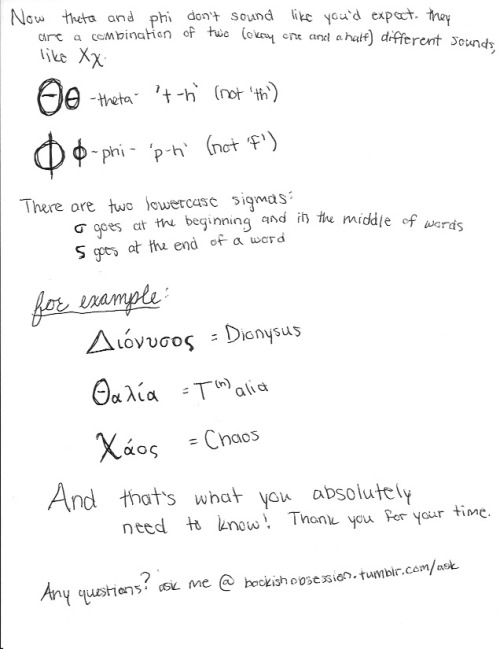 Now theta and phi don't sound like you'd expect. they
are a combination of two (okay one and a half) different sounds,
like Χχ.
Θθ - theta - 't-h' (not 'th')
Φφ - phi - 'p-h' (not 'f')
There are two lowercase sigmas:
σ goes at the beginning and in the middle of words
ς goes at the end of a word
for example:
Διόνυσος = Dionysus
Θαλία = T⁽ʰ⁾alia
Χάος = Chaos
And that's what you absolutely
need to know! Thank you for your time.
Any questions? ask me @ bookishobsession.tumblr.com/ask